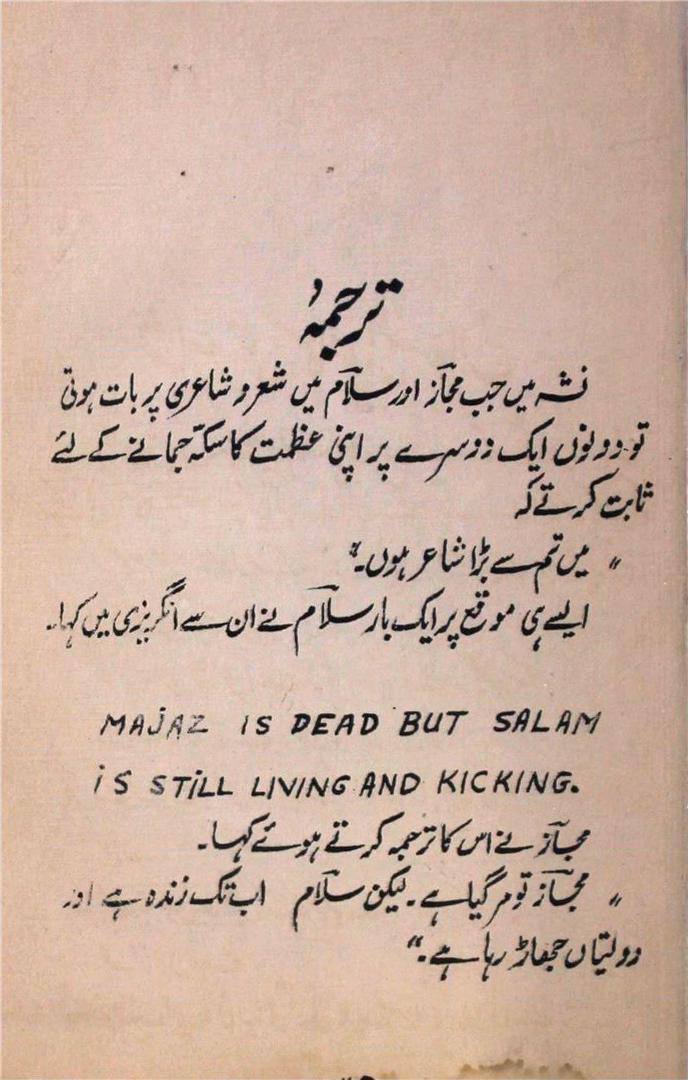 ترجمہ
نشہ میں جب مجاز اور سلام میں شعر و شاعری پر بات ہوتی
تو دونوں ایک دوسرے پر اپنی عظمت کا سکہ جمانے کے لئے
ثابت کرتے کہ
" میں تم سے بڑا شاعر ہوں۔"
ایسے ہی موقع پر ایک بار سلام نے ان سے انگریزی میں کہا۔
MAJAZ IS DEAD BUT SALAM
IS STILL LIVING AND KICKING.
مجاز نے اس کا ترجمہ کرتے ہوئے کہا۔
" مجاز تو مر گیا ہے۔ لیکن سلام اب تک زندہ ہے اور
دولتیاں جھاڑ رہا ہے۔"